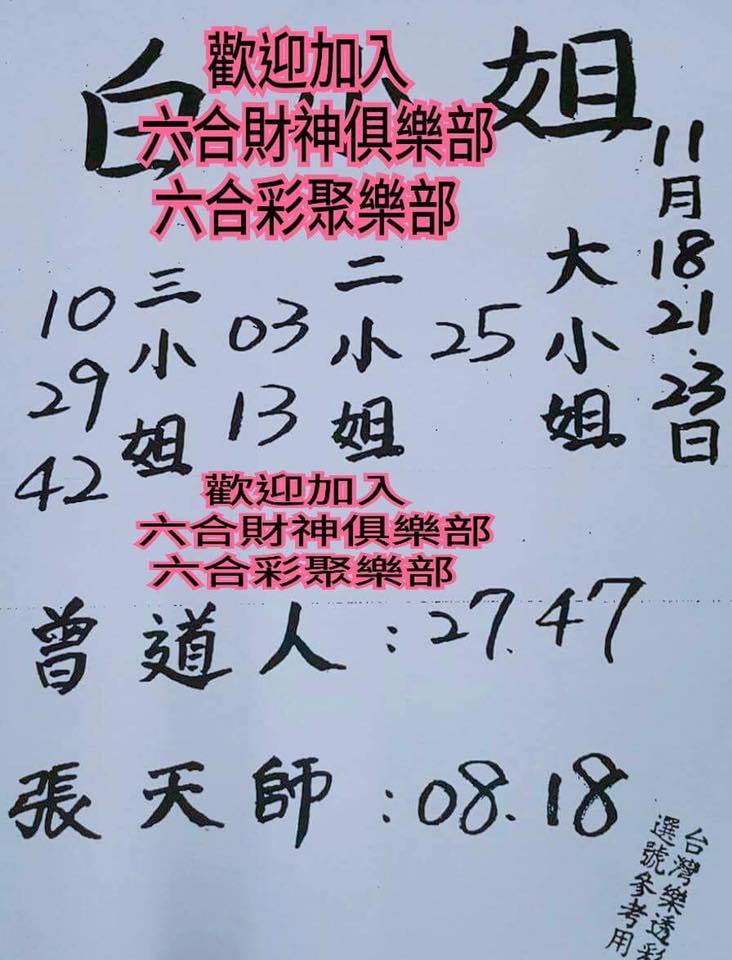 白小姐
歡迎加入
六合財神俱樂部
六合彩聚樂部
11月18.21.23日
大小姐
25
二小姐
03
13
三小姐
10
29
42
歡迎加入
六合財神俱樂部
六合彩聚樂部
曾道人:27.47
張天師:08.18
台灣樂透彩
選號參考用